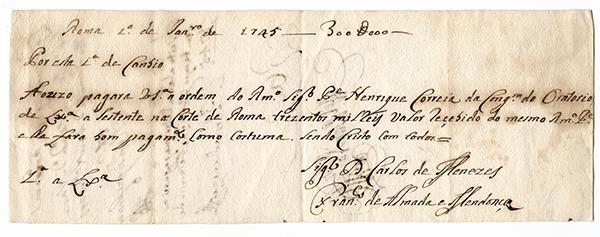 Roma 1.ª de Janr.º de 1745 — 300 8000 —
Por esta 1.ª de Cambio
Auizo pagara V.S.ª a ordem do Am.º Sig.r P.e Henrique Correia da Cong.m do Oratorio
de Lx.ª a sestente na Corte de Roma trezentos mil Reis Valor recebido do mesmo Am.º P.e
e lhe fara bom pagam.to Como Costuma. Sendo Cristo com todos =
Sig.r D. Carlos de Menezes
1.ª a Lx.ª
Fran.co de Almada e Mendonça